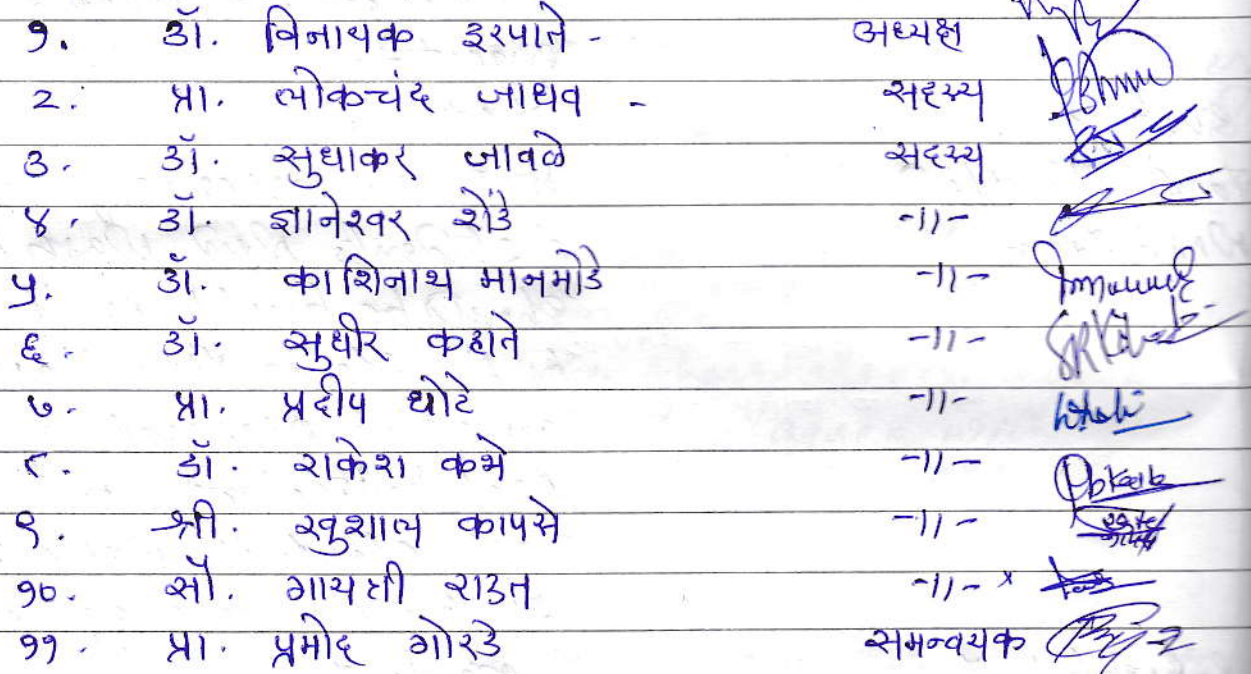 १. डॉ. विनायक इरपाते - अध्यक्ष
२. प्रा. लोकचंद जाधव - सदस्य
३. डॉ. सुधाकर जावळे सदस्य
४. डॉ. ज्ञानेश्वर शेंडे -॥-
५. डॉ. काशिनाथ मानमोडे -॥-
६. डॉ. सुधीर कहाते -॥-
७. प्रा. प्रदीप थोटे -॥-
८. डॉ. राकेश कभे -॥-
९. श्री. खुशाल कापसे -॥-
१०. सौ. गायत्री राउत -॥- x
११. प्रा. प्रमोद गोरडे समन्वयक